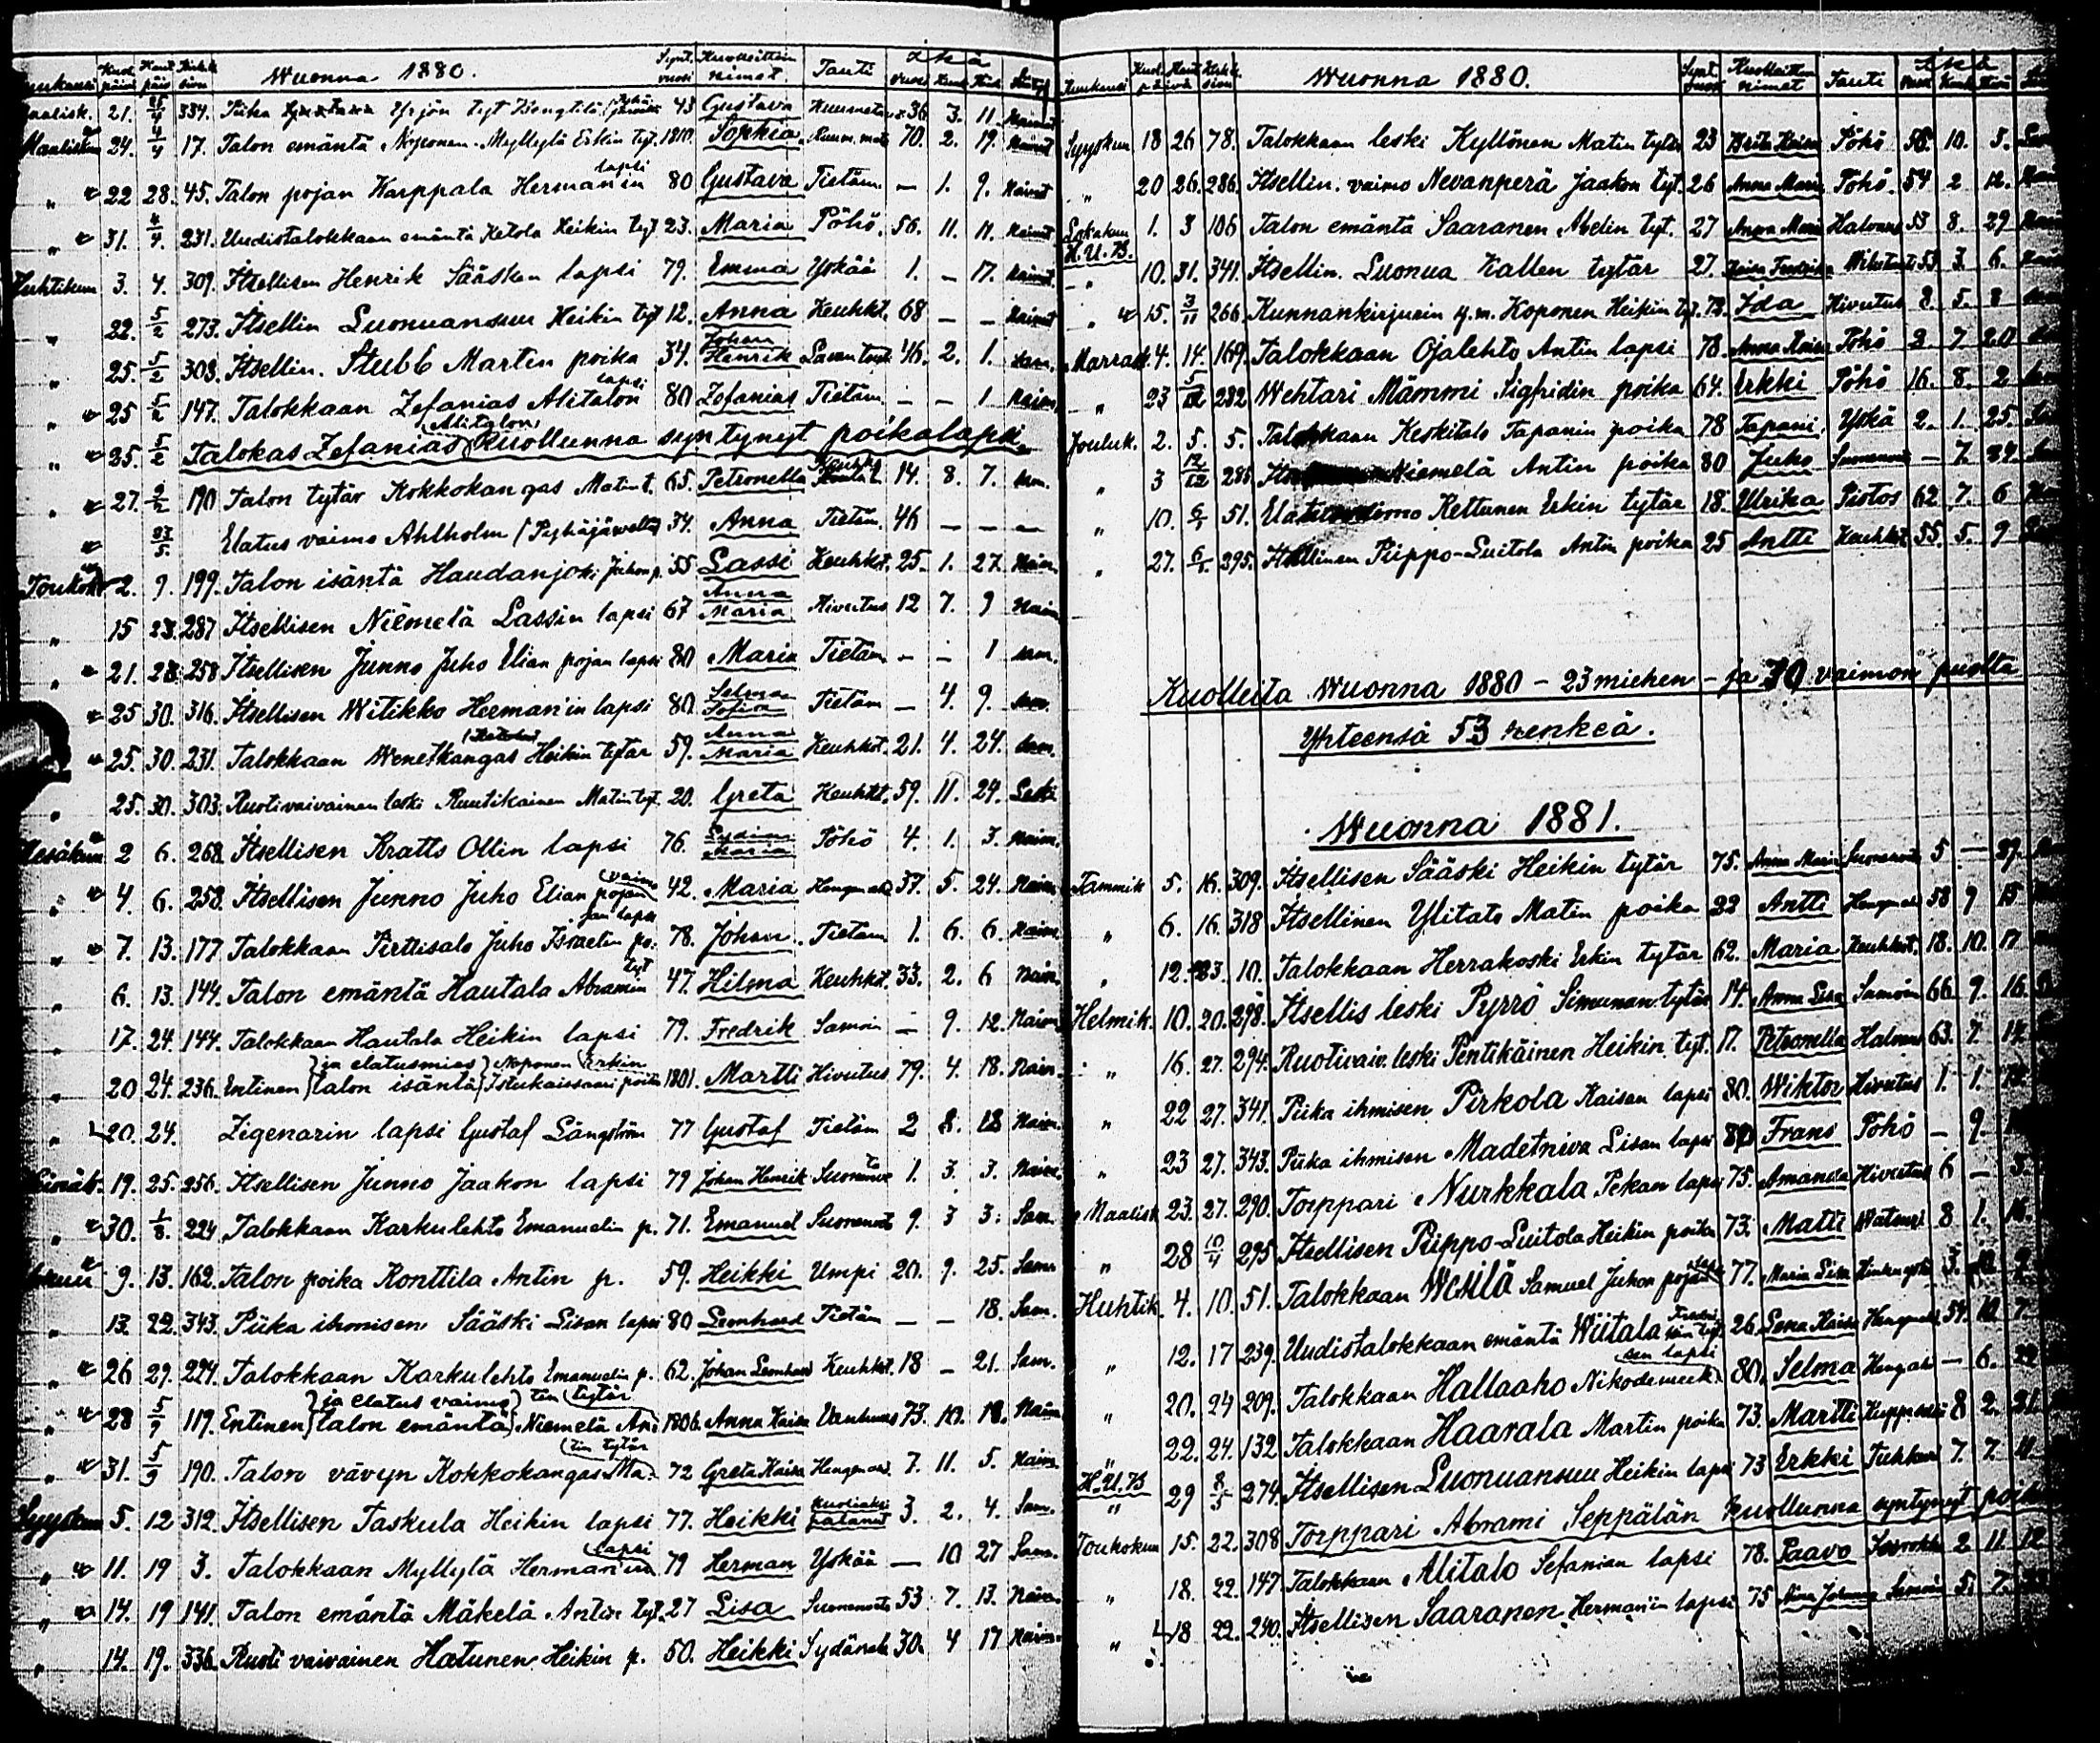 Kuol. päivä Haut. päiv Kirk. sivu Wuonna 1880. Synt. vuosi Kuolleitten nimet. Tauti Ikä vuos. Kuuk.
21. 334. Piika Yrjön tyt 43 Gustava 36 3. 11.
Maalisk. 24. 4/4 17. Talon emäntä Noponen Myllylä Erkin tyt. 1810. Sophia 70. 2. 19.
" 22 28. 45. Talon pojan Karppala Herman'in lapsi 80 Gustava Tietäm. — 1. 9.
" 31. 4/4. 231. Uudistalokkaan emäntä Ketola Heikin tyt 23. Maria Pöhö. 56. 11. 11.
Huhtikuu 3. 4. 309. Itsellisen Henrik Sääsken lapsi 79. Emma Yskää 1. — 17.
" 22. 5/2 273. Itsellin Luonuansuu Heikin tyt 12. Anna Keuhkt. 68 — —
" 25. 5/2 303. Itsellin. Stubb Martin poika 34. Johan Henrik 46. 2. 1.
" 25 5/2 147. Talokkaan Zefanias Alitalon lapsi 80 Zefanias Tietäm. — — 1
" 25. 5/2 Talokas Zefanias (Alitalon) Kuollunna syntynyt poikalapsi.
" 27. 9/2 190 Talon tytär Kokkokangas Matin t. 65. Petronella 14. 8. 7.
23/5. Elatus vaimo Ahlholm (Pyhäjärveltä) 34. Anna Tietäm. 46 — — —
Toukok 2. 9. 199. Talon isäntä Haudanjoki Juhon p. 55 Lassi Keuhkt. 25. 1. 27.
" 15 23. 287 Itsellisen Niemelä Lassin lapsi 67 Anna Maria Hivutus 12 7. 9
" 21. 23. 258 Itsellisen Junno Juho Elian pojan lapsi 80 Maria Tietäm — — 1
" 25 30. 316. Itsellisen Witikko Herman'in lapsi 80. Selma Sofia Tietäm — 4. 9.
" 25. 30. 231. Talokkaan Wenetkangas Heikin tytär 59. Anna Maria Keuhkt. 21. 4. 24.
" 25. 30. 303. Ruotivaivainen leski Ruutikainen Matin tyt. 20. Greta Keuhkt. 59. 11. 24. Leski
Kesäkuu 2 6. 268. Itsellisen Kratts Ollin lapsi 76. Lydia Maria Pöhö 4. 1. 3. Naim.
" 4. 6. 258. Itsellisen Junno Juho Elian pojan vaimo 42. Maria 37. 5. 24. Naim.
" 7. 13. 177 Talokkaan Pirttisalo Juho Israelin po- jan lapsi 78. Johan. Tietäm 1. 6. 6. Naim.
" 6. 13. 144. Talon emäntä Hautala Abramin tyt 47. Hilma Keuhkt. 33. 2. 6 Naim.
" 17. 24. 144. Talokkaan Hautala Heikin lapsi 79. Fredrik Samoin — 9. 12. Naim.
" 20 24. 236. Entinen talon isäntä ja elatusmies Noponen Istukaissaari Erkin poika 1801. Martti Hivutus 79. 4. 18. Naim.
" 20. 24. Zigenarin lapsi Gustaf Långström 77 Gustaf Tietäm 2 8. 18 Naim.
Heinäk. 19. 25. 256. Itsellisen Junno Jaakon lapsi 79 Johan Henrik 1. 3. 3. Naim.
" 30. 1/8. 224 Talokkaan Karkulehto Emanuelin p. 71. Emanuel Suonenvet 9. 3 3. Sam.
9. 13. 162. Talon poika Konttila Antin p. 59. Heikki Umpi 20. 9. 25. Sam.
" 13. 22. 343. Piika ihmisen Sääski Lisan lapsi 80 Leonhard Tietäm — — 18. Sam.
" 26 29. 224. Talokkaan Karkulehto Emanuelin p. 62. Johan Leonhard Keuhkt. 18 — 21. Sam.
" 28 5/9 119. Entinen talon emäntä ja elatus vaimo Niemelä An- tin tytär 1806. Anna Kaisa Vanhuus 73. 10. 18. Naim
" 31. 5/9 190. Talon vävyn Kokkokangas Ma- tin tytär 72 Greta Kaisa 7. 11. 5. Naim.
Syyskuu 5. 12 312. Itsellisen Taskula Heikin lapsi 77. Heikki kuoliaksi palanut 3. 2. 4. Sam.
" 11. 19 3. Talokkaan Myllylä Herman'in lapsi 79 Herman Yskää — 10 27 Sam.
" 14. 19 141. Talon emäntä Mäkelä Antin tyt. 27 Lisa 53 7. 13. Naim.
" 14. 19. 336. Ruoti vaivainen Hatunen Heikin p. 50. Heikki 30. 4 17 Naim.
Kuukausi Kuol. päivä Haut. Kirk. sivu Wuonna 1880. Synt. vuosi Kuolleitten nimet Tauti Ikä
Syyskuu 18 26 78. Talokkaan leski Kyllönen Matin tytär 23 Brita Kaisa Pöhö 56. 10. 5.
" 20 26. 286. Itsellin. vaimo Nevanperä Jaakon tyt. 26 Anna Maria Pöhö. 54 2 12.
Lokakuu 1. 3 106 Talon emäntä Saaranen Abelin tyt. 27 Anna Maria 53 8. 29
H. U. B.
" 10. 31. 341. Itsellin. Luonua Kallen tytär 27. 53 3. 6.
" 15. 3/11 266. Kunnankirjurin y.m. Koponen Heikin tyt. 72. Ida Hivutus 8. 5. 8
Marrask. 4. 14. 169. Talokkaan Ojalehto Antin lapsi 78. Anna Kaisa Pöhö 2 7 20
" 23 232 Wehtari Mämmi Sigfridin poika 64. Erkki Pöhö 16. 8. 2
Jouluk. 2. 5. 5. Talokkaan Keskitalo Tapanin poika 78 Tapani. Yskä 2. 1. 25.
" 3 12/12 286. Niemelä Antin poika 80 Juho — 7.
" 10. 6/1 51. Elatusvaimo Kettunen Erkin tytär 18. Ulrika Pistos 62 7. 6
" 27. 6/1. 295. Itsellinen Piippo-Luitola Antin poika 25 Antti Keuhkt 55. 5. 9
Kuolleita Wuonna 1880 – 23 miehen – ja 30 vaimon puolta
Yhteensä 53 henkeä.
Wuonna 1881.
Tammik 5. 16. 309. Itsellisen Sääski Heikin tytär 75. Anna Maria 5 —
" 6. 16. 318 Itsellinen Ylitalo Matin poika 22 Antti 58 9 15
" 12. 23. 10. Talokkaan Herrakoski Erkin tytär 62. Maria Keuhkt. 18. 10. 17
Helmik. 10. 20. 298. Itsellis leski Pyrrö Simunan tytär 14. Anna Lisa Samoin 66. 9. 16.
" 16. 27. 294. Ruotivaiv. leski Pentikäinen Heikin tyt. 17. Petronella 63. 7.
" 22 27. 341. Piika ihmisen Pirkola Kaisan lapsi 80. Wiktor Hivutus 1. 1.
" 23 27. 343. Piika ihmisen Madetniva Lisan lapsi 80 Frans Pöhö — 9.
Maalisk 23. 27. 290. Torppari Nurkkala Pekan lapsi 75. Amanda Hivutus 6 —
" 28 10/4 295 Itsellisen Piippo-Luitola Heikin poika 73. Matti 8 1. 16.
Huhtik. 4. 10. 51. Talokkaan Wesilä Samuel Juhon pojan lapsi 77. Maria Lisa 3.
" 12. 17 239. Uudistalokkaan emäntä Wiitala 26. Lena Kaisa 54. 10. 7
" 20. 24 209. Talokkaan Hallaaho Nikodemuk- sen lapsi 80. Selma — 6.
" 22. 24. 132 Talokkaan Haarala Martin poika 73. Martti 8 2. 21.
H. U. B
" 29 8/5 274. Itsellisen Luonuansuu Heikin lapsi 73 Erkki 7. 7.
Toukokuu 15. 22. 308 Torppari Abrami Seppälän kuollunna syntynyt
" 18. 22. 147 Talokkaan Alitalo Sefanian lapsi 78. Paavo 2 11. 12
" 18 22. 240. Itsellisen Saaranen Herman'in lapsi 75 5. 7.